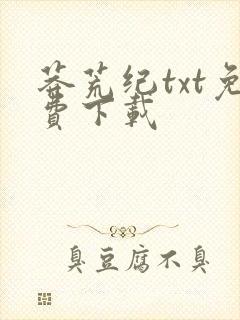 莽荒纪txt免
费下载
臭豆腐不臭